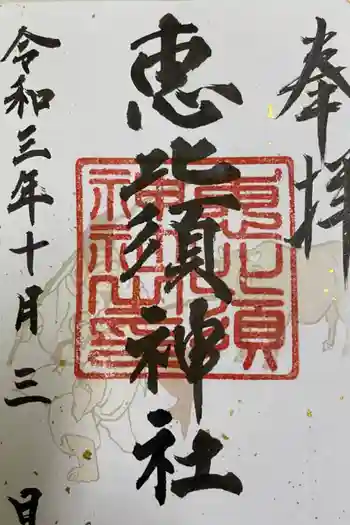 奉拝
恵比須神社
恵比須神社璽
令和三年十月三日